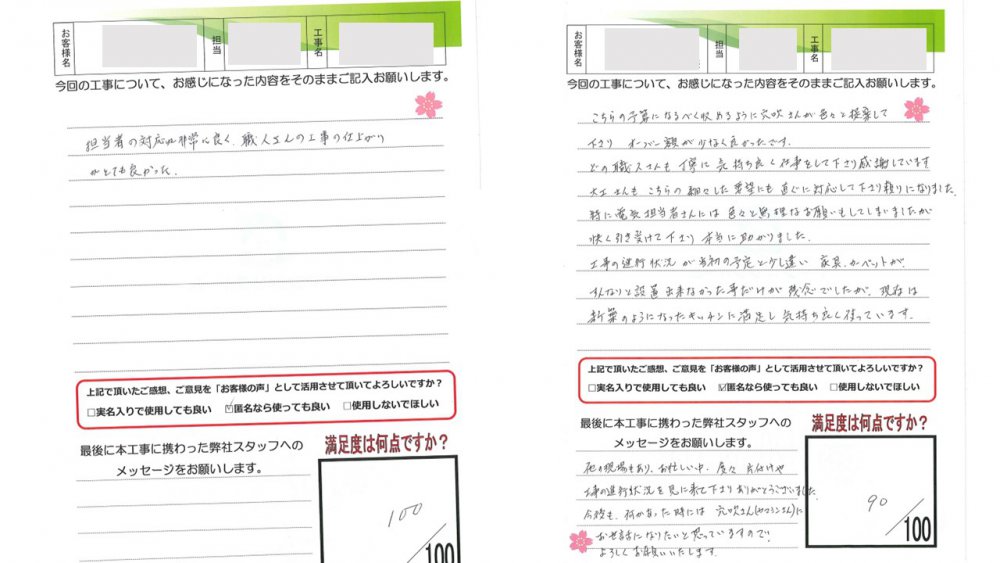 お客様名
担当
工事名
今回の工事について、お感じになった内容をそのままご記入お願いします。
担当者の対応が非常に良く、職人さんの工事の仕上がり
がとても良かった。
上記で頂いたご感想、ご意見を「お客様の声」として活用させて頂いてよろしいですか？
□実名入りで使用しても良い ☑匿名なら使っても良い □使用しないでほしい
最後に本工事に携わった弊社スタッフへの
メッセージをお願いします。
満足度は何点ですか？
100
/100
お客様名
担当
工事名
今回の工事について、お感じになった内容をそのままご記入お願いします。
こちらの予算になるべく収めるように穴吹さんが色々と提案して
下さり オーバー額が少なく良かったです。
どの職人さんも丁寧に気持ち良く仕事をして下さり感謝しています
大工さんも こちらの細々した要望にも直ぐに対応して下さり頼りになりました。
特に電気担当者さんには色々と無理なお願いもしてしまいましたが
快く引き受けて下さり 本当に助かりました。
工事の進行状況が当初の予定と少し違い 家具、カーペットが、
すんなりと設置出来なかった事だけが残念でしたが、現在は
新築のようになったキッチンに満足し気持ち良く使っています。
上記で頂いたご感想、ご意見を「お客様の声」として活用させて頂いてよろしいですか？
□実名入りで使用しても良い ☑匿名なら使っても良い □使用しないでほしい
最後に本工事に携わった弊社スタッフへの
メッセージをお願いします。
他の現場もあり、お忙しい中、度々 片付けや
工事の進行状況を見に来て下さりありがとうございました。
今後も、何かあった時には 穴吹さん()に
お世話になりたいと思っていますので、
よろしくお願いいたします。
満足度は何点ですか？
90
/100